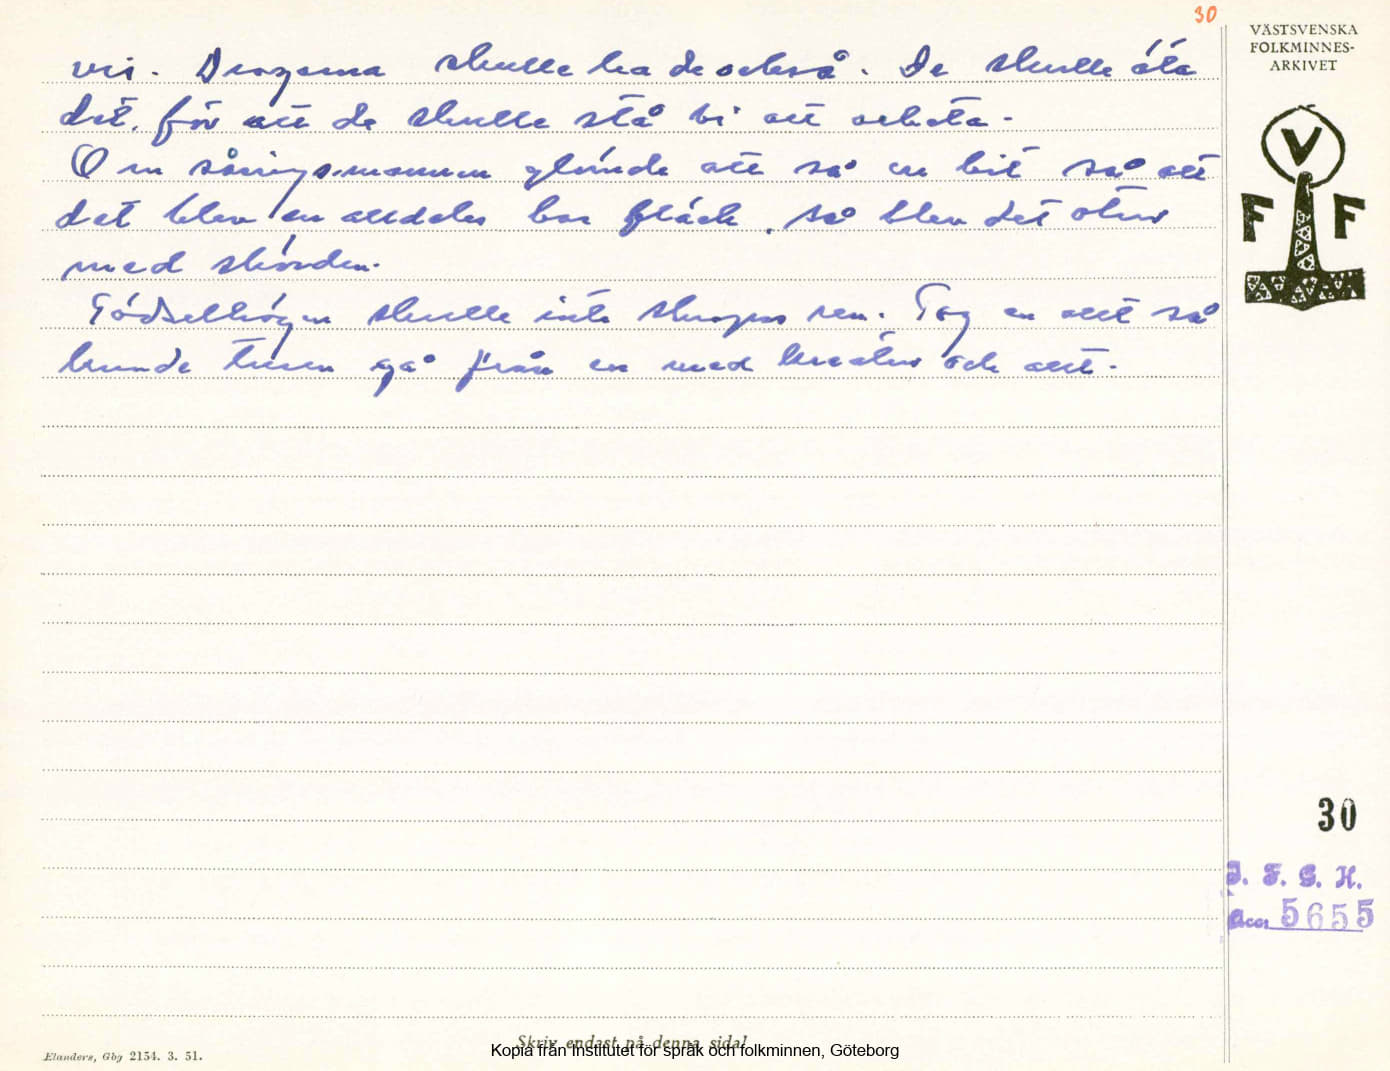 30
VÄSTSVENSKA
FOLKMINNES-
ARKIVET
V
F F
vis. Dragarna skulle ha de också. De skulle äta
det, för att de skulle stå bi att arbeta.
Om såningsmannen glömde att så en bit så att
det blev en alldeles bar fläck, så blev det otur
med skörden.
Gödselhögen skulle inte skrapas ren. Tog en allt så
kunde turen gå från en med kreatur och allt.
30
I. F. G. H.
Acc. 5655
Skriv endast på denna sida!
Elanders, Gbg 2154. 3. 51.
Kopia från Institutet för språk och folkminnen, Göteborg